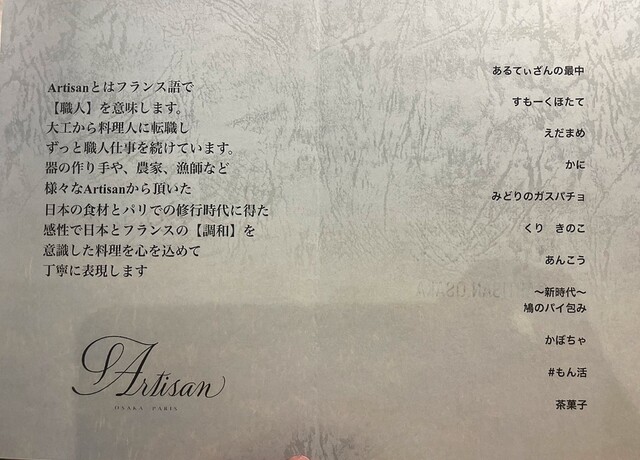 Artisanとはフランス語で
【職人】を意味します。
大工から料理人に転職し
ずっと職人仕事を続けています。
器の作り手や、農家、漁師など
様々なArtisanから頂いた
日本の食材とパリでの修行時代に得た
感性で日本とフランスの【調和】を
意識した料理を心を込めて
丁寧に表現します
Artisan
OSAKA PARIS
あるてぃざんの最中
すもーくほたて
えだまめ
かに
みどりのガスパチョ
くり　きのこ
あんこう
〜新時代〜
鳩のパイ包み
かぼちゃ
#もん活
茶菓子